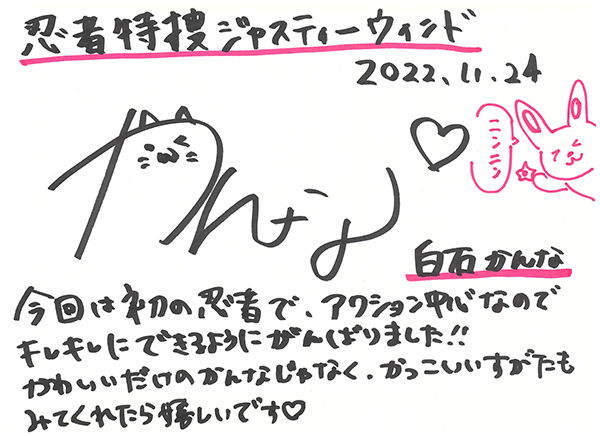 忍者特捜ジャスティーウィンド
2022.11.24
ニンニン
かんな
白石かんな
今回は初の忍者で、アクション中心なので
キレキレにできるようにがんばりました!!
かわいいだけのかんなじゃなく、かっこいいすがたも
みてくれたら嬉しいです♡